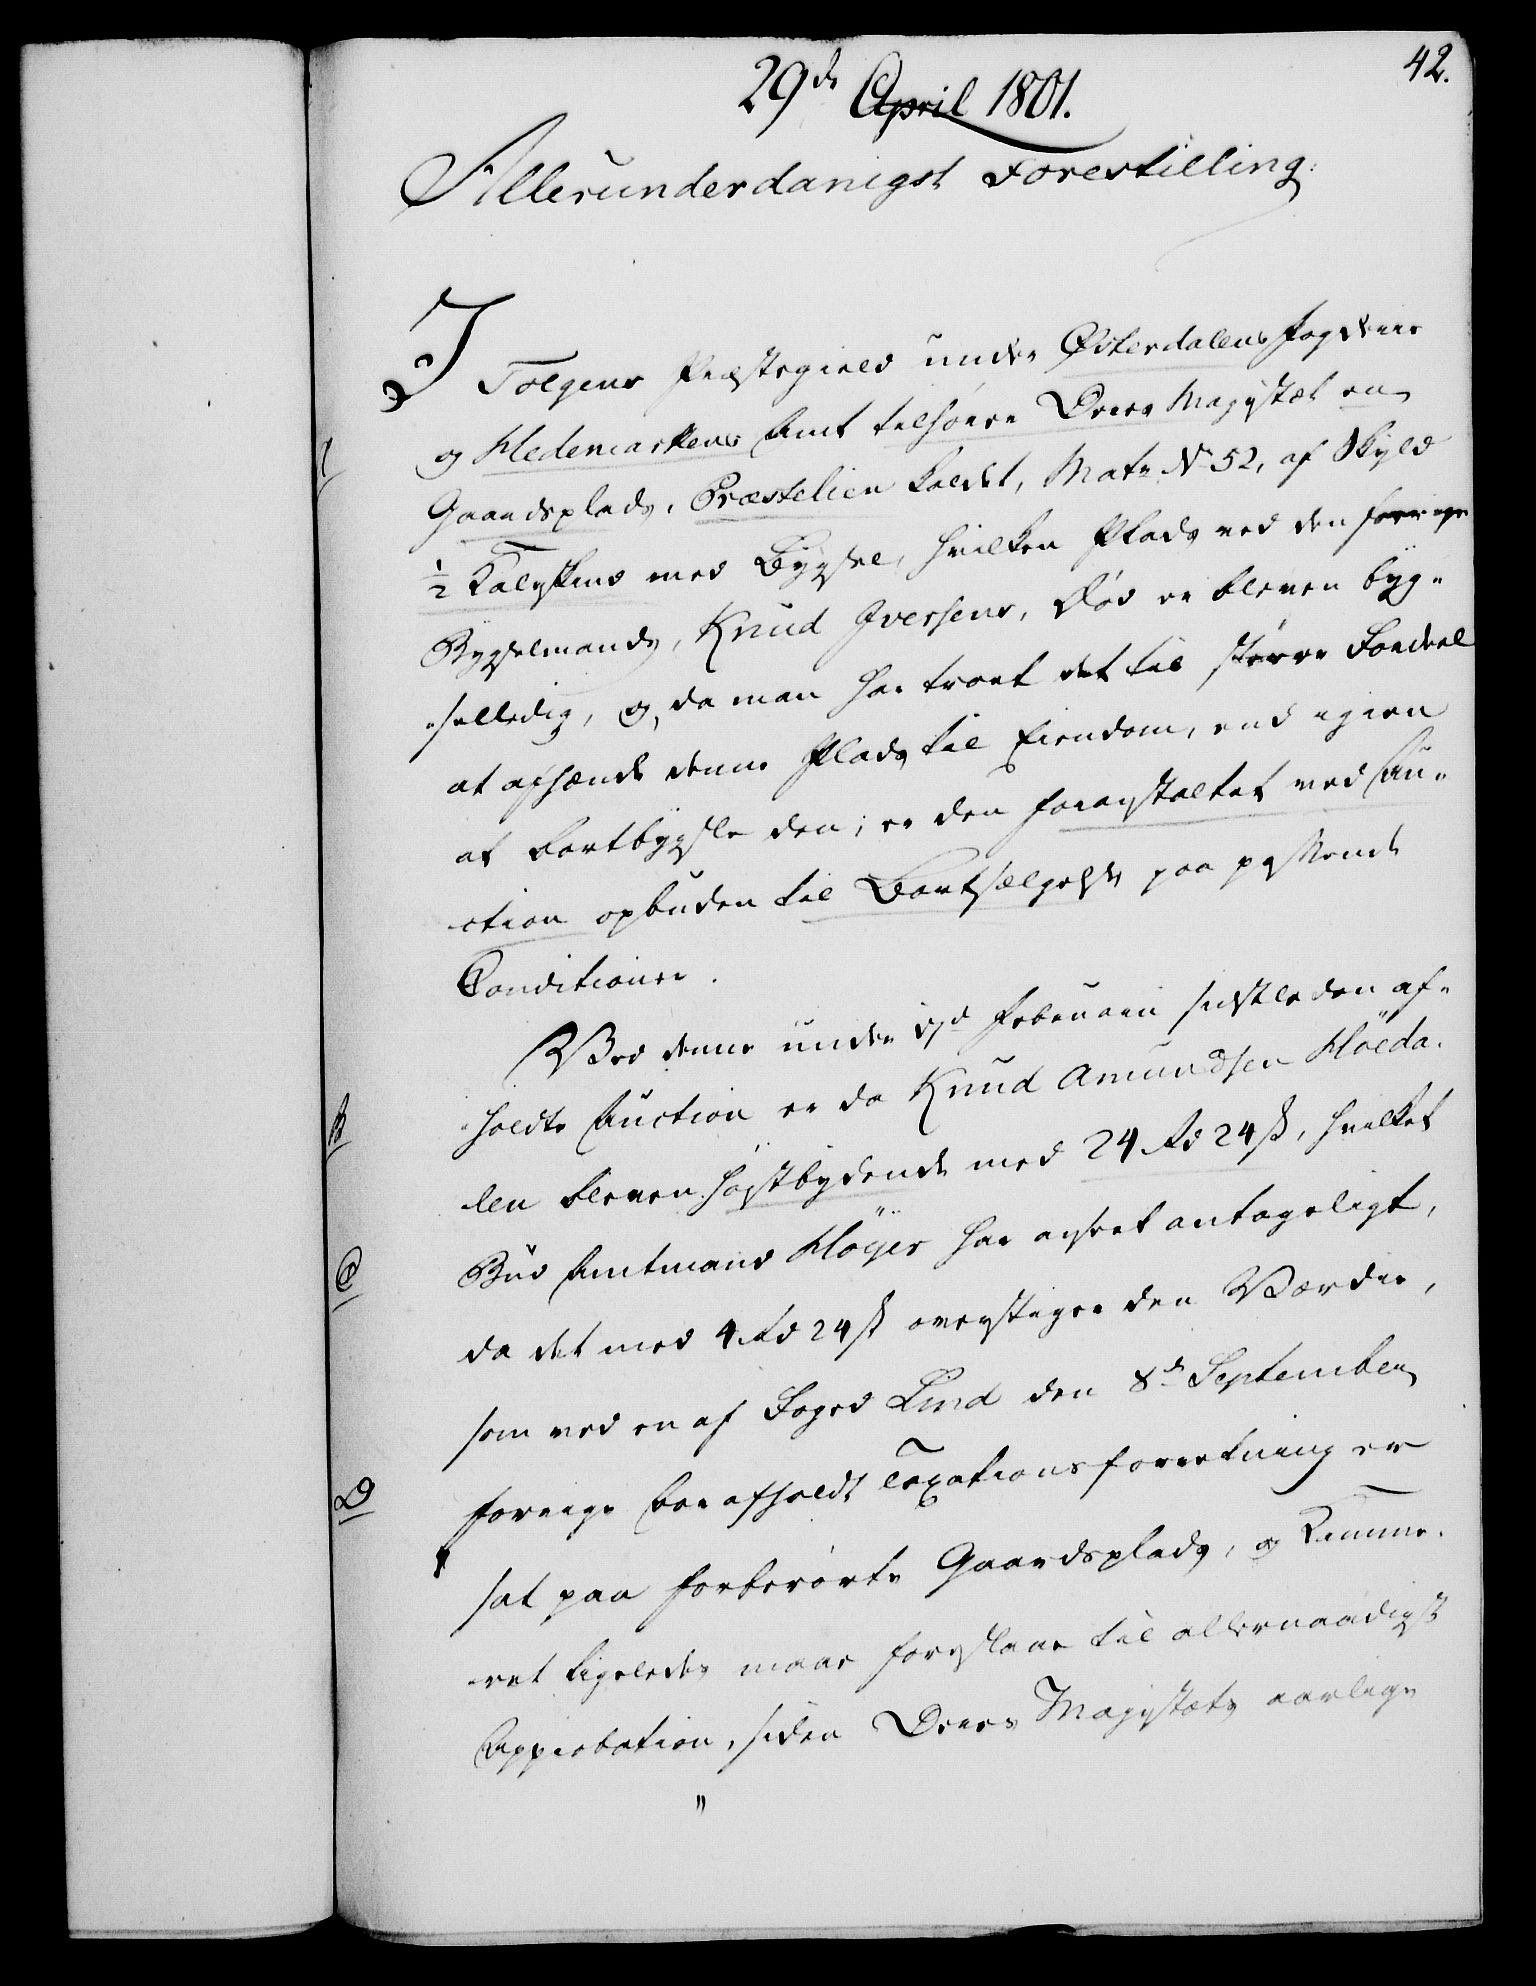 42.
29de April 1801.
Allerunderdanigst Forestilling.
I Tolgens Præstegield under Østerdalens Fogderie
A
og Hedemarkens Amt tilhører Deres Majestæt en
Gaardsplads, Præstelien kaldet, Matr. No 52, af Skyld
1/2 Kalvskind med Bygsel, hvilken Plads ved den forrige
Bygselmands, Knud Iversens, Død er bleven byg-
selledig, og, da man har troet det til større Fordeel
at afhænde denne Plads til Eiendom, end igien
at bortbygsle den; er den foranstaltet ved Au-
ction opbuden til Bortsælgelse paa passende
Conditioner.
Ved denne under Februarii sidstleden af-
B
holdte Auction er da Knud Amundsen Höeda-
len bleven høistbydende med 24 Rd 24 ß, hvilket
C
Bud Amtmand Höyer har anseet antageligt,
da det med 4 Rd 24 ß overstiger den Værdie,
som ved en af Foged Lind den 8de September
D
forrige Aar afholdt Taxationsforretning er
sat paa forberørte Gaardsplads, og Kamme-
ret ligeledes maae foreslaae til allernaadigst
Approbation, siden Deres Majestæts aarlige
"